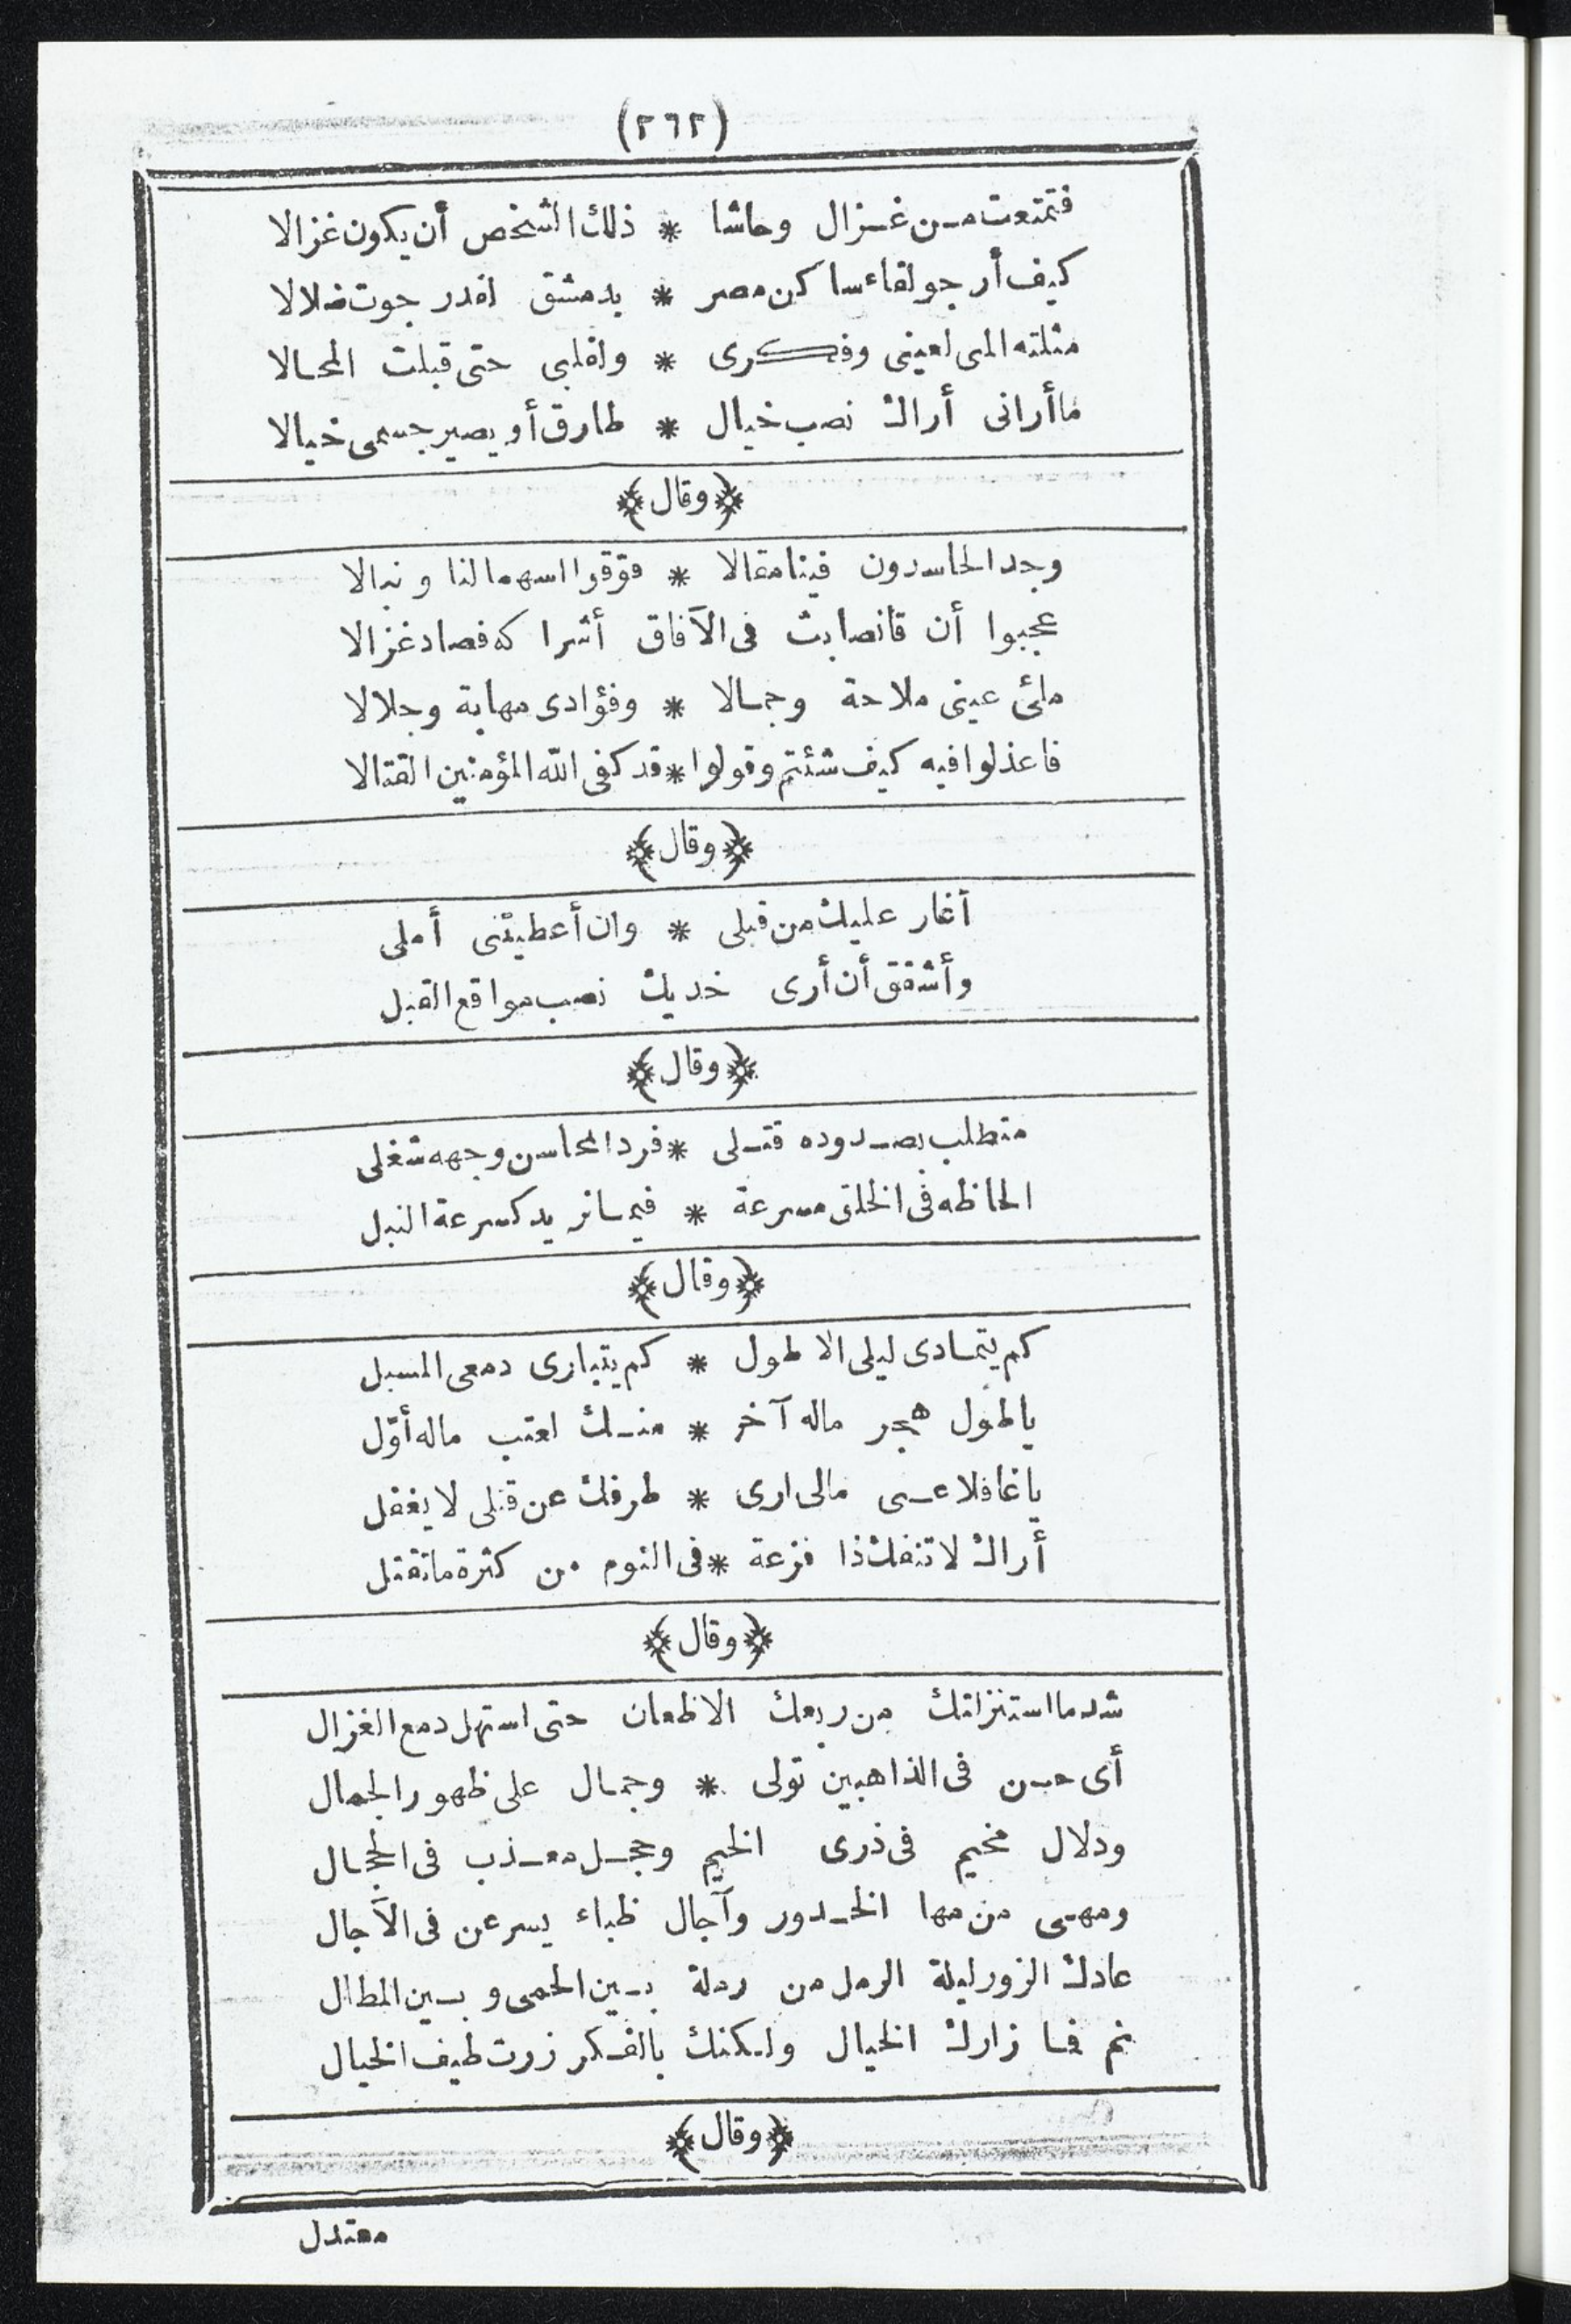 (٢٦٢)
فتمتعت من غزال وحاشا * ذلك الشخص أن يكون غزالا
كيف أرجو لقاء ساكن مصر * بدمشق لقد رجوت ضلالا
مثلته المى لعينى وفكرى * ولقلبى حتى قبلت المحالا
ما أرانى أراك نصب خيال * طارق أو يصير جسمى خيالا
﴿وقال﴾
وجد الحاسدون فينا مقالا * فوّقوا اسهما لنا ونبالا
عجبوا أن قانصا بث فى الآفاق أشراكه فصاد غزالا
ملئ عينى ملاحة وجمالا * وفؤادى مهابة وجلالا
فاعذلوا فيه كيف شئتم وقولوا * قد كفى الله المؤمنين القتالا
﴿وقال﴾
أغار عليك من قبلى * وان أعطيتنى أملى
وأشفق أن أرى خديك نصب مواقع القبل
﴿وقال﴾
متطلب بصدوده قتلى * فرد المحاسن وجهه شغلى
الحاظه فى الخلق مسرعة * فيما نريد كسرعة النبل
﴿وقال﴾
كم يتمادى ليلى الاطول * كم يتبارى دمعى المسبل
يا طول هجر ماله آخر * منك لعتب ماله أوّل
يا غافلا عنى مالى ارى * طرفك عن قتلى لا يغفل
أراك لا تنفك ذا فزعة * فى النوم من كثرة ما تقتل
﴿وقال﴾
شد ما استنزلتك من ربعك الاظعان حتى استهل دمع الغزال
أى حسن فى الذاهبين تولى * وجمال على ظهور الجمال
ودلال مخيم فى ذرى الخيم وحجل معذب فى الحجال
ومهى من مها الخدور وآجال ظباء يسرعن فى الآجال
عادك الزور ليلة الرمل من رملة بين الحمى وبين المطال
نم فما زارك الخيال ولكنك بالفكر زرت طيف الخيال
﴿وقال﴾
معتدل